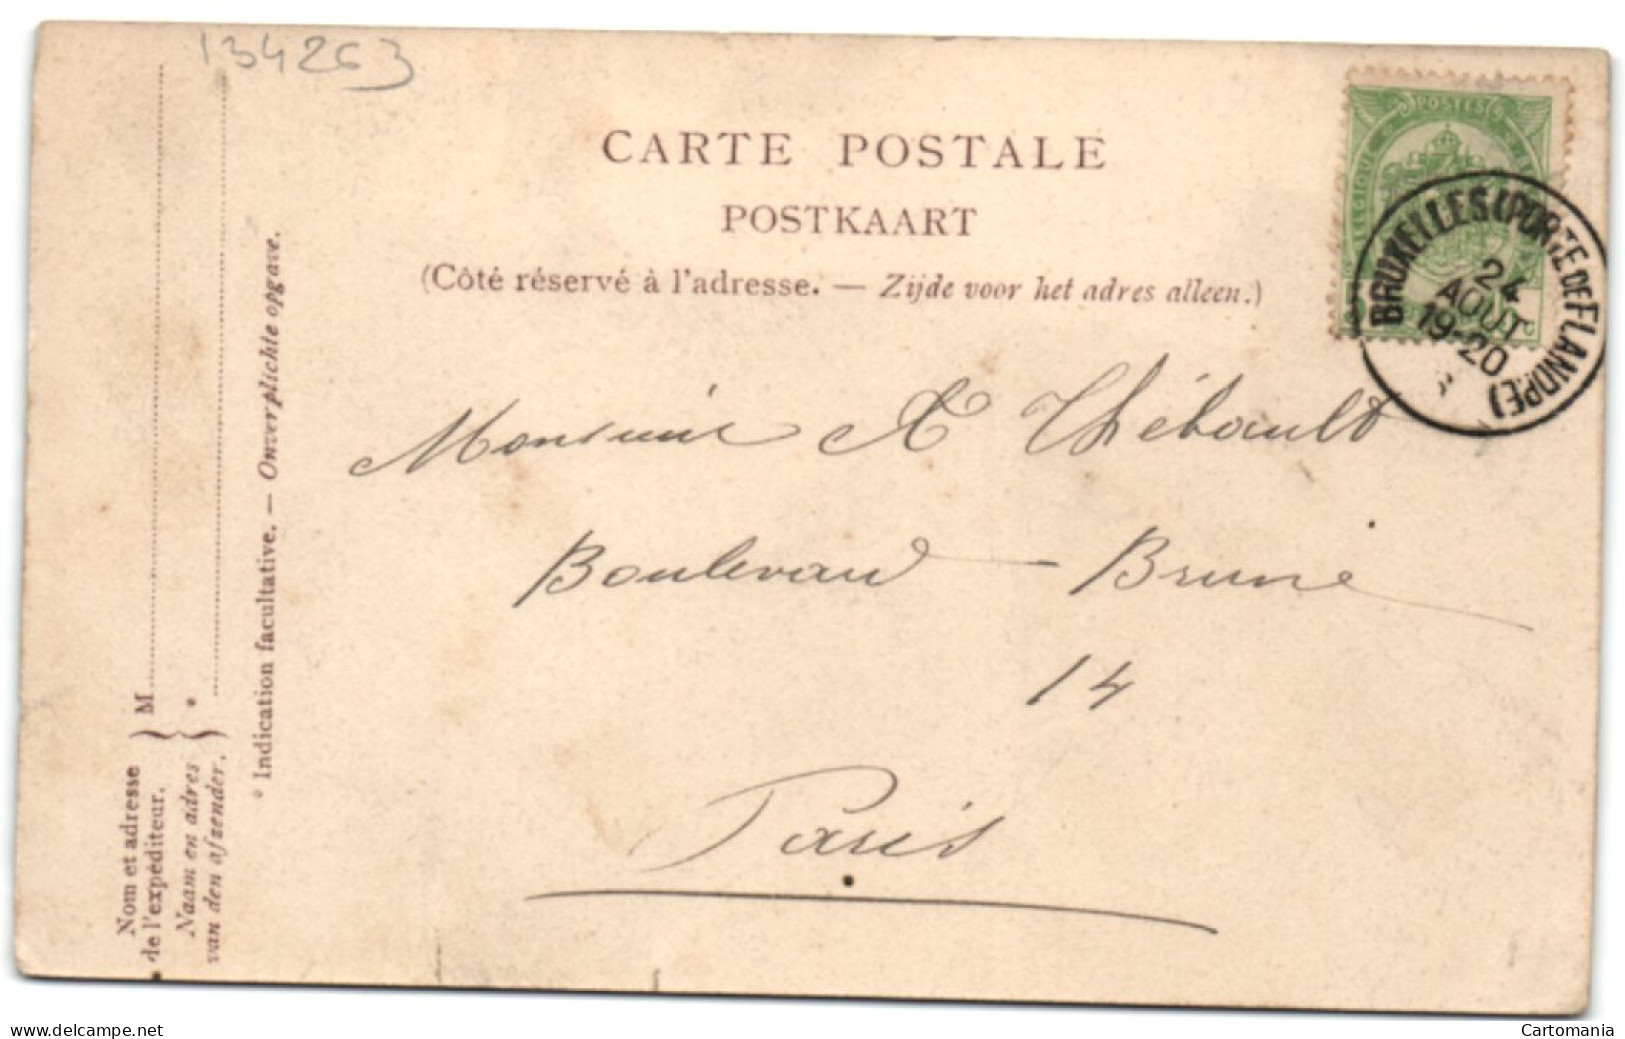 134263
CARTE POSTALE
POSTKAART
(Côté réservé à l'adresse. — Zijde voor het adres alleen.)
POSTES
BRUXELLES (PORTE DE FLANDRE)
24
AOUT
19-20
Monsieur A Thébault
Boulevard — Brune
14
Paris
Nom et adresse
de l'expéditeur.
Naam en adres
van den afzender.
M
*
* Indication facultative. — Onverplichte opgave.
www.delcampe.net
Cartomania